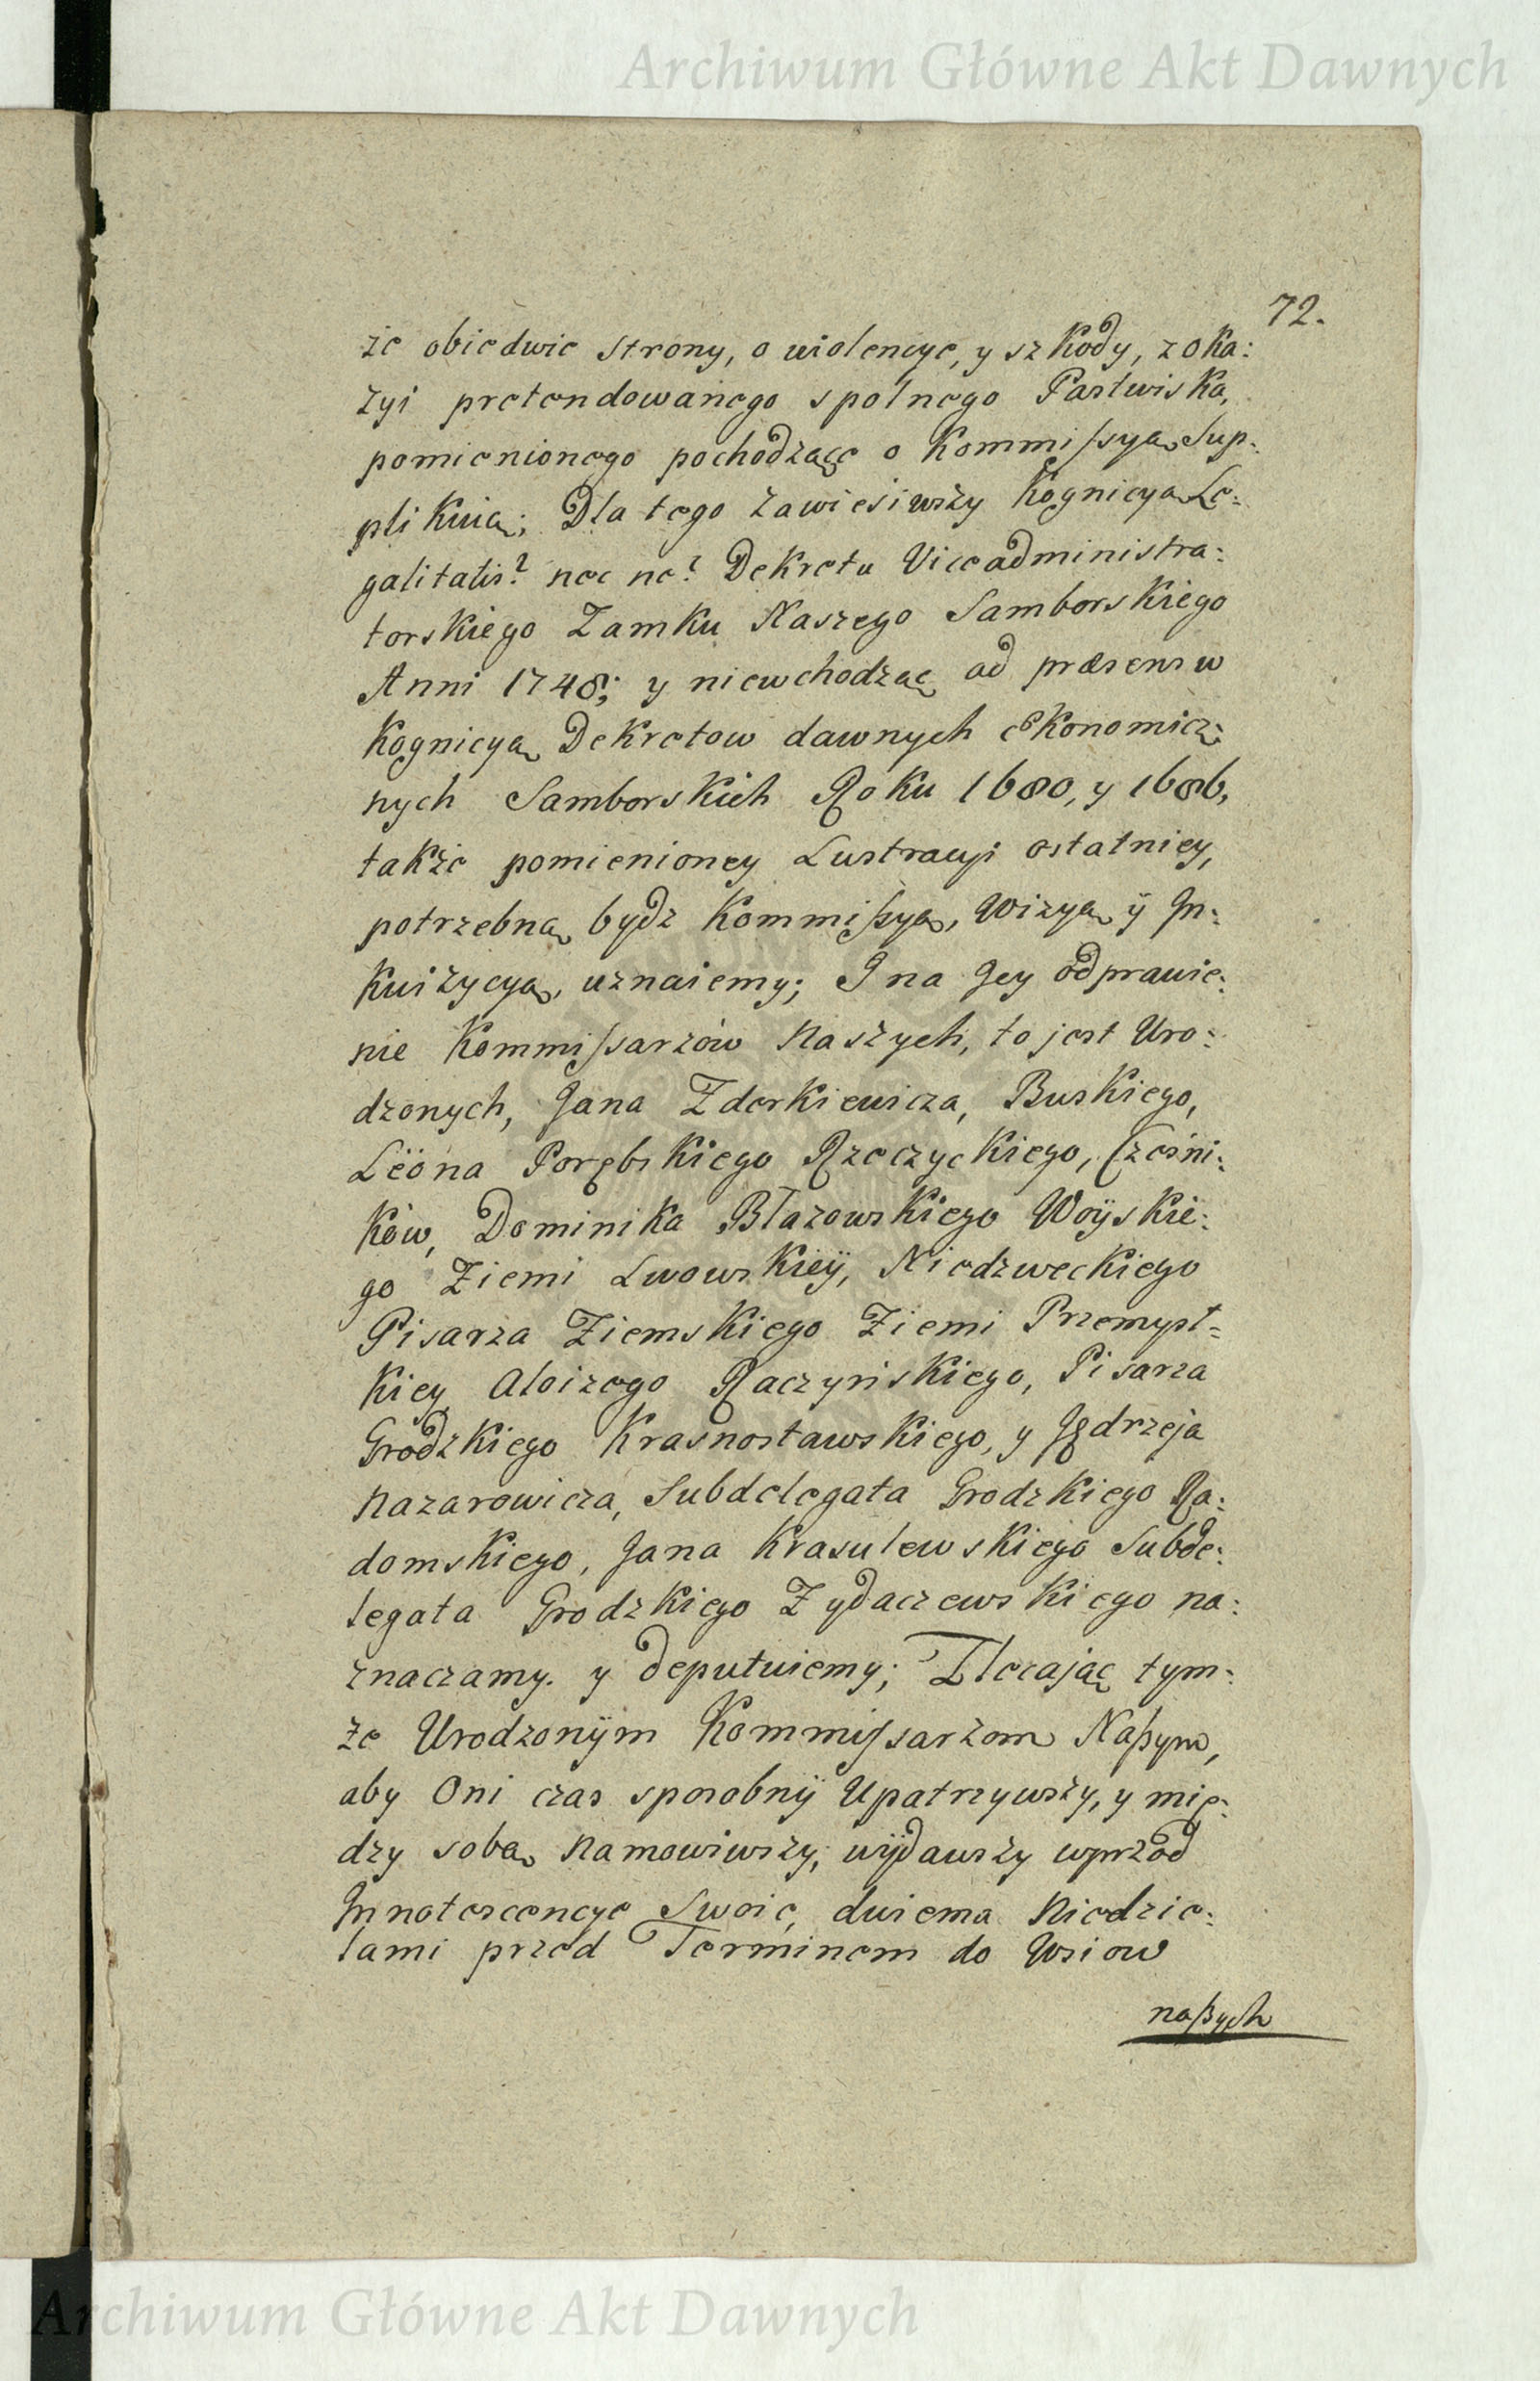 Archiwum Główne Akt Dawnych
72.
że obiedwie strony, o wiolencye, y szkody, z oka:
zyi pretendowanego spolnego Pastwiska,
pomienionego pochodzące o Kommissyą Sup:
plikuią; Dla tego zawiesiwszy Kognicyą Le:
galitatis? nec ne? Dekretu Viceadministra:
torskiego Zamku Naszego Samborskiego
Anni 1748; y niewchodząc ad præsens w
Kognicyą Dekretow dawnych Ekonomicz:
nych Samborskich Roku 1680, y 1686,
także pomienioney Lustracyi ostatniey,
potrzebną bydz Kommißyą, Wizyą ÿ In:
kwizycyą, uznaiemy; I na Jey odprawie:
nie Kommissarzów Naszych, to jest Uro:
dzonych, Jana Zderkiewicza, Buskiego,
Lëöna Porębskiego Rzeczyckiego, Cześni:
ków, Dominika Błazowskiego Woÿskie:
go Ziemi Lwowskieÿ, Niedzweckiego
Pisarza Ziemskiego Ziemi Przemysł:
kiey Aloizego Raczyńskiego, Pisarza
Grodzkiego Krasnostawskiego, y Jędrzeja
Nazarowicza, Subdelegata Grodzkiego Ra:
domskiego, Jana Krasulewskiego Subde:
legata Grodzkiego Zydaczewskiego na:
znaczamy. y deputuiemy; Zlecając tym:
że Urodzonÿm Kommissarzom Naßym,
aby Oni czas sposobnÿ Upatrzywszy, y mię:
dzy sobą Namowiwszy, wÿdawszy wprzód
Innotescencye Swoie, dwiema Niedzie:
lami przed Terminem do Wsiow
naßych
Archiwum Główne Akt Dawnych